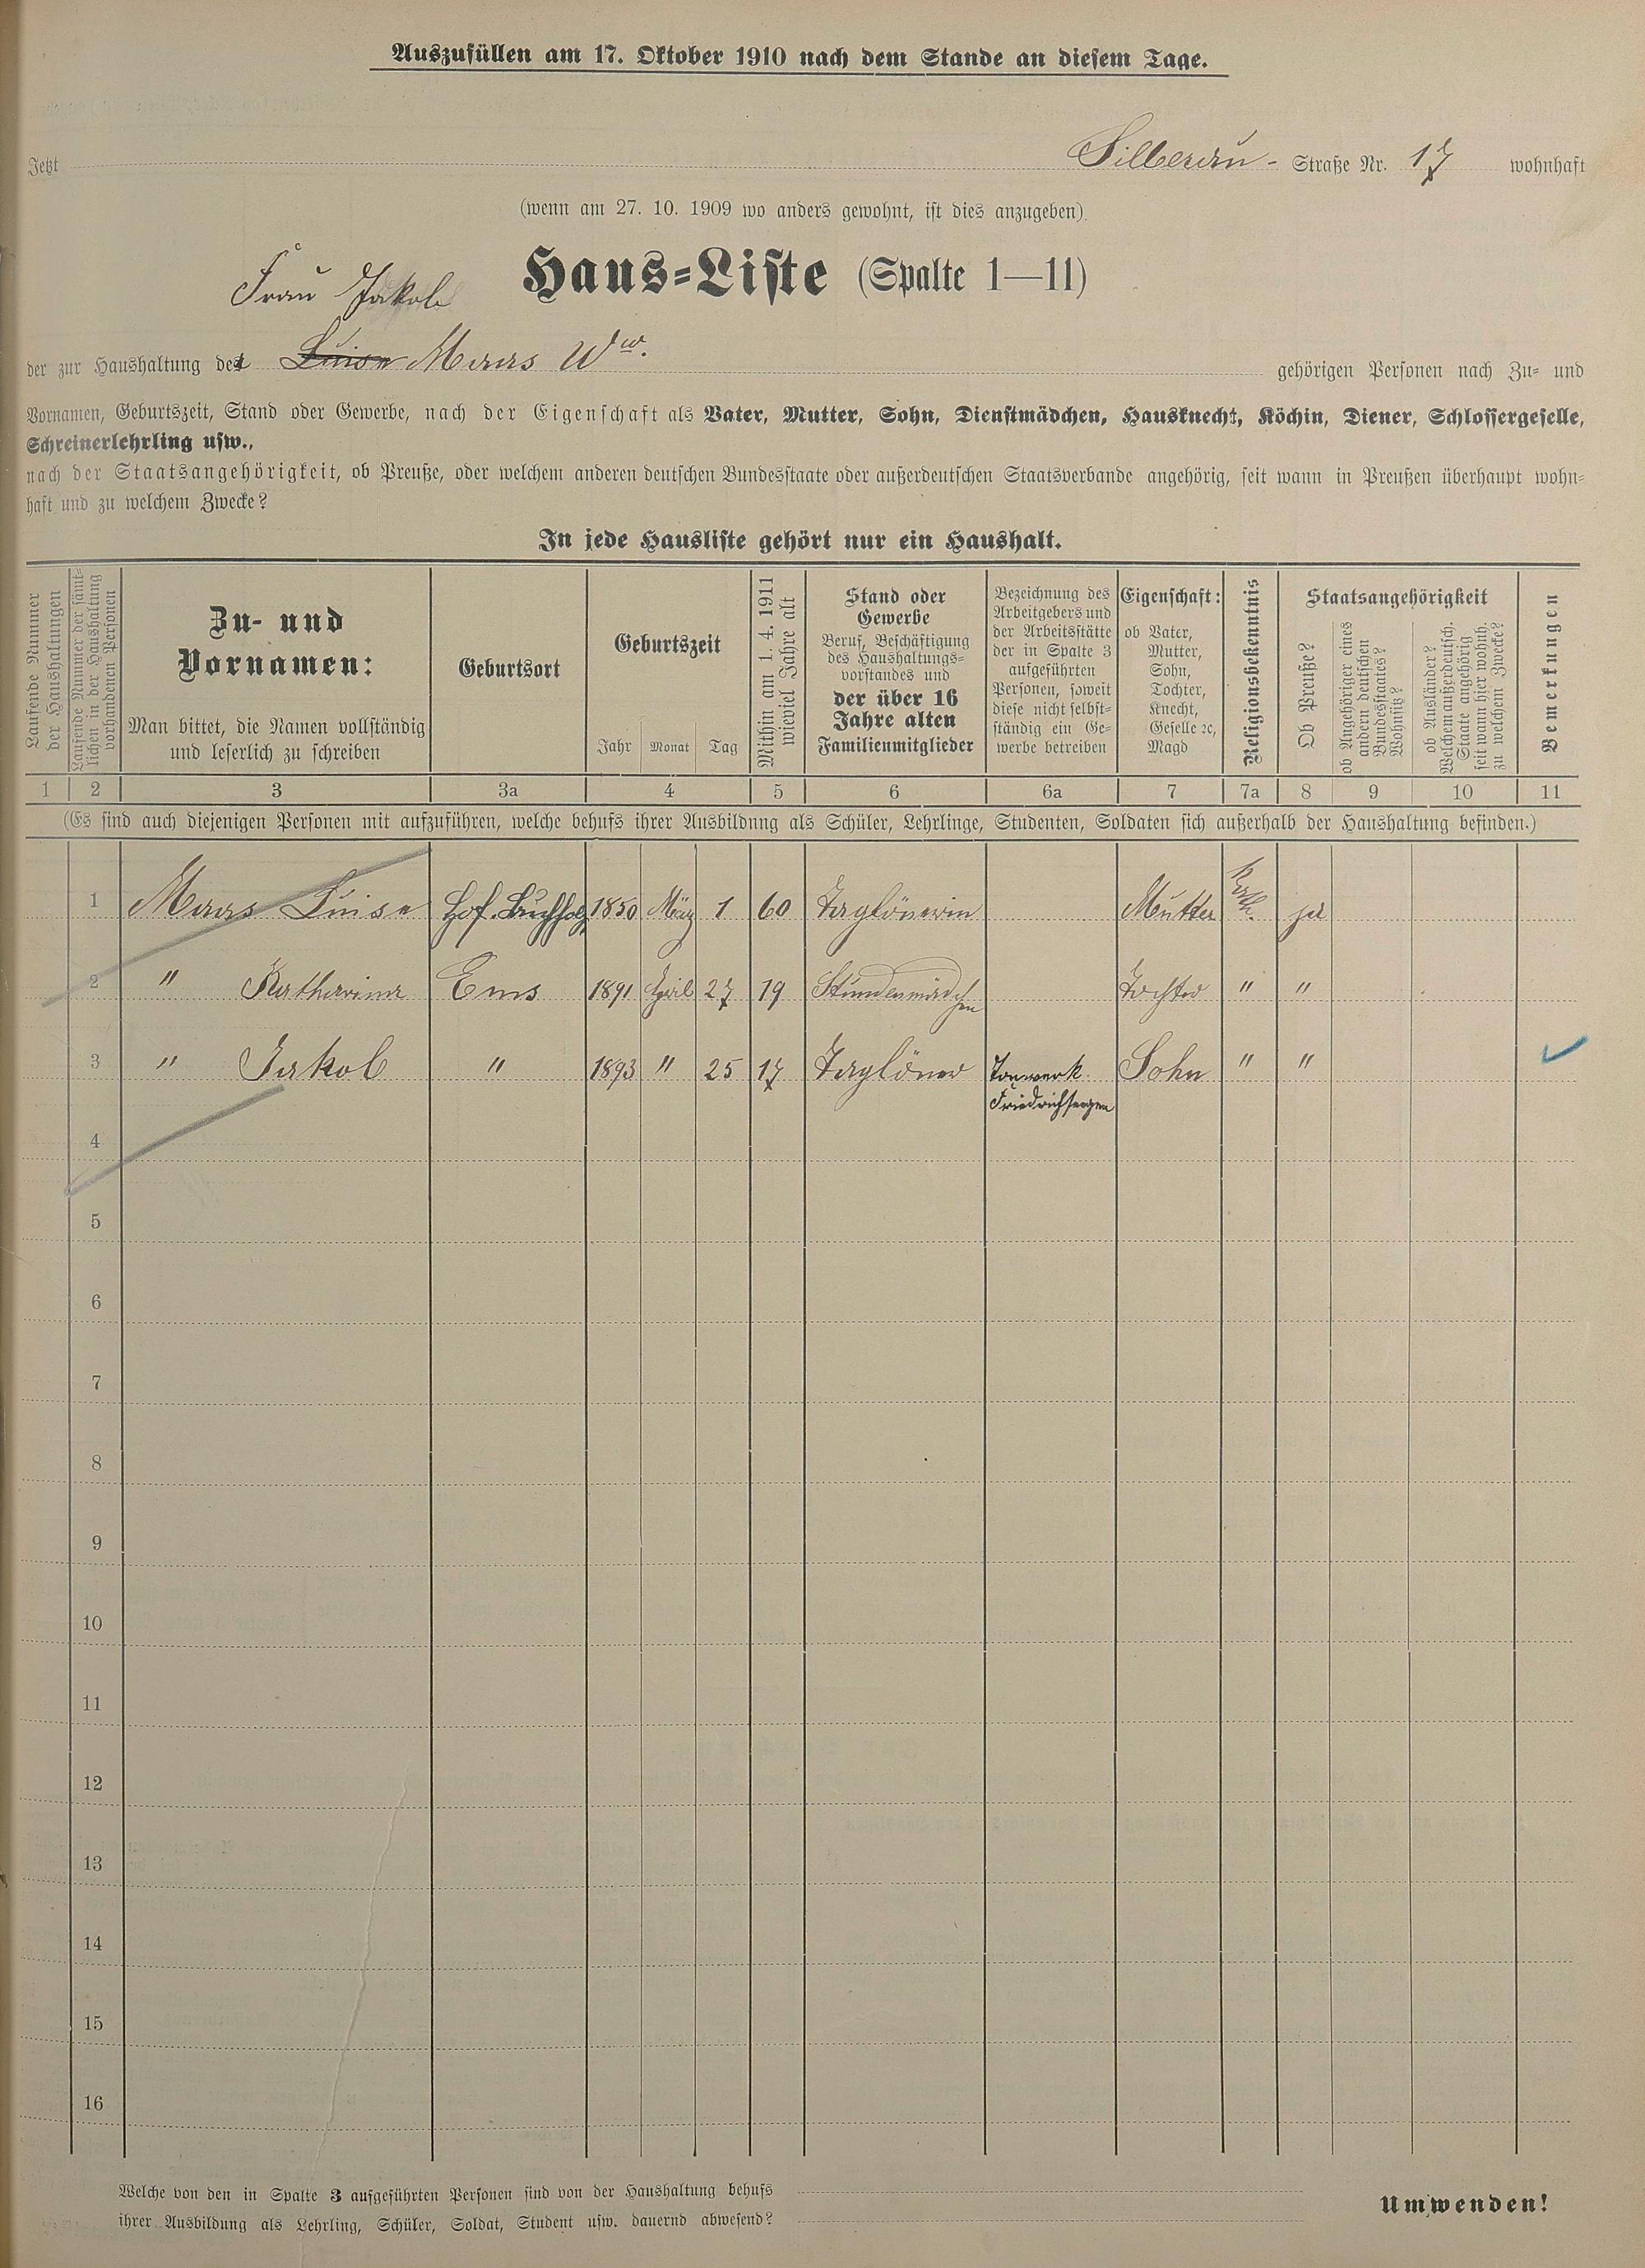 Auszufüllen am 17. Oktober 1910 nach dem Stande an diesem Tage.
Jetzt Silberau- Straße Nr. 17 wohnhaft
(wenn am 27. 10. 1909 wo anders gewohnt, ist dies anzugeben).
Haus-Liste (Spalte 1—11)
Frau Jakob
der zur Haushaltung der Luise Maas Ww. gehörigen Personen nach Zu- und
Vornamen, Geburtszeit, Stand oder Gewerbe, nach der Eigenschaft als Vater, Mutter, Sohn, Dienstmädchen, Hausknecht, Köchin, Diener, Schlossergeselle,
Schreinerlehrling usw.,
nach der Staatsangehörigkeit, ob Preuße, oder welchem anderen deutschen Bundesstaate oder außerdeutschen Staatsverbande angehörig, seit wann in Preußen überhaupt wohn-
haft und zu welchem Zwecke?
In jede Hausliste gehört nur ein Haushalt.
Laufende Nummer
der Haushaltungen
Laufende Nummer der sämt-
lichen in der Haushaltung
vorhandenen Personen
Zu- und
Vornamen:
Man bittet, die Namen vollständig
und leserlich zu schreiben
Geburtsort
Geburtszeit
Jahr Monat Tag
Mithin am 1. 4. 1911
wieviel Jahre alt
Stand oder
Gewerbe
Beruf, Beschäftigung
des Haushaltungs-
vorstandes und
der über 16
Jahre alten
Familienmitglieder
Bezeichnung des
Arbeitgebers und
der Arbeitsstätte
der in Spalte 3
aufgeführten
Personen, soweit
diese nicht selbst-
ständig ein Ge-
werbe betreiben
Eigenschaft:
ob Vater,
Mutter,
Sohn,
Tochter,
Knecht,
Geselle ꝛc,
Magd
Religionsbekenntnis
Staatsangehörigkeit
Ob Preuße?
ob Angehöriger eines
andern deutschen
Bundesstaates?
Wohnsitz?
ob Ausländer?
Welchem außerdeutsch.
Staate angehörig
seit wann hier wohnh.
zu welchem Zwecke?
Bemerkungen
1 2 3 3a 4 5 6 6a 7 7a 8 9 10 11
(Es sind auch diejenigen Personen mit aufzuführen, welche behufs ihrer Ausbildung als Schüler, Lehrlinge, Studenten, Soldaten sich außerhalb der Haushaltung befinden.)
1 Maas Luise Hof. Buchholz 1850 März 1 60 Taglönerin Mutter Kath. ja
2 " Katharina Ems 1891 April 27 19 Stundenmädchen Tochter " "
3 " Jakob " 1893 " 25 17 Taglöner Tonwerk Sohn " "
Friedrichsegen
4
5
6
7
8
9
10
11
12
13
14
15
16
Welche von den in Spalte 3 aufgeführten Personen sind von der Haushaltung behufs
ihrer Ausbildung als Lehrling, Schüler, Soldat, Student usw. dauernd abwesend?
Umwenden!